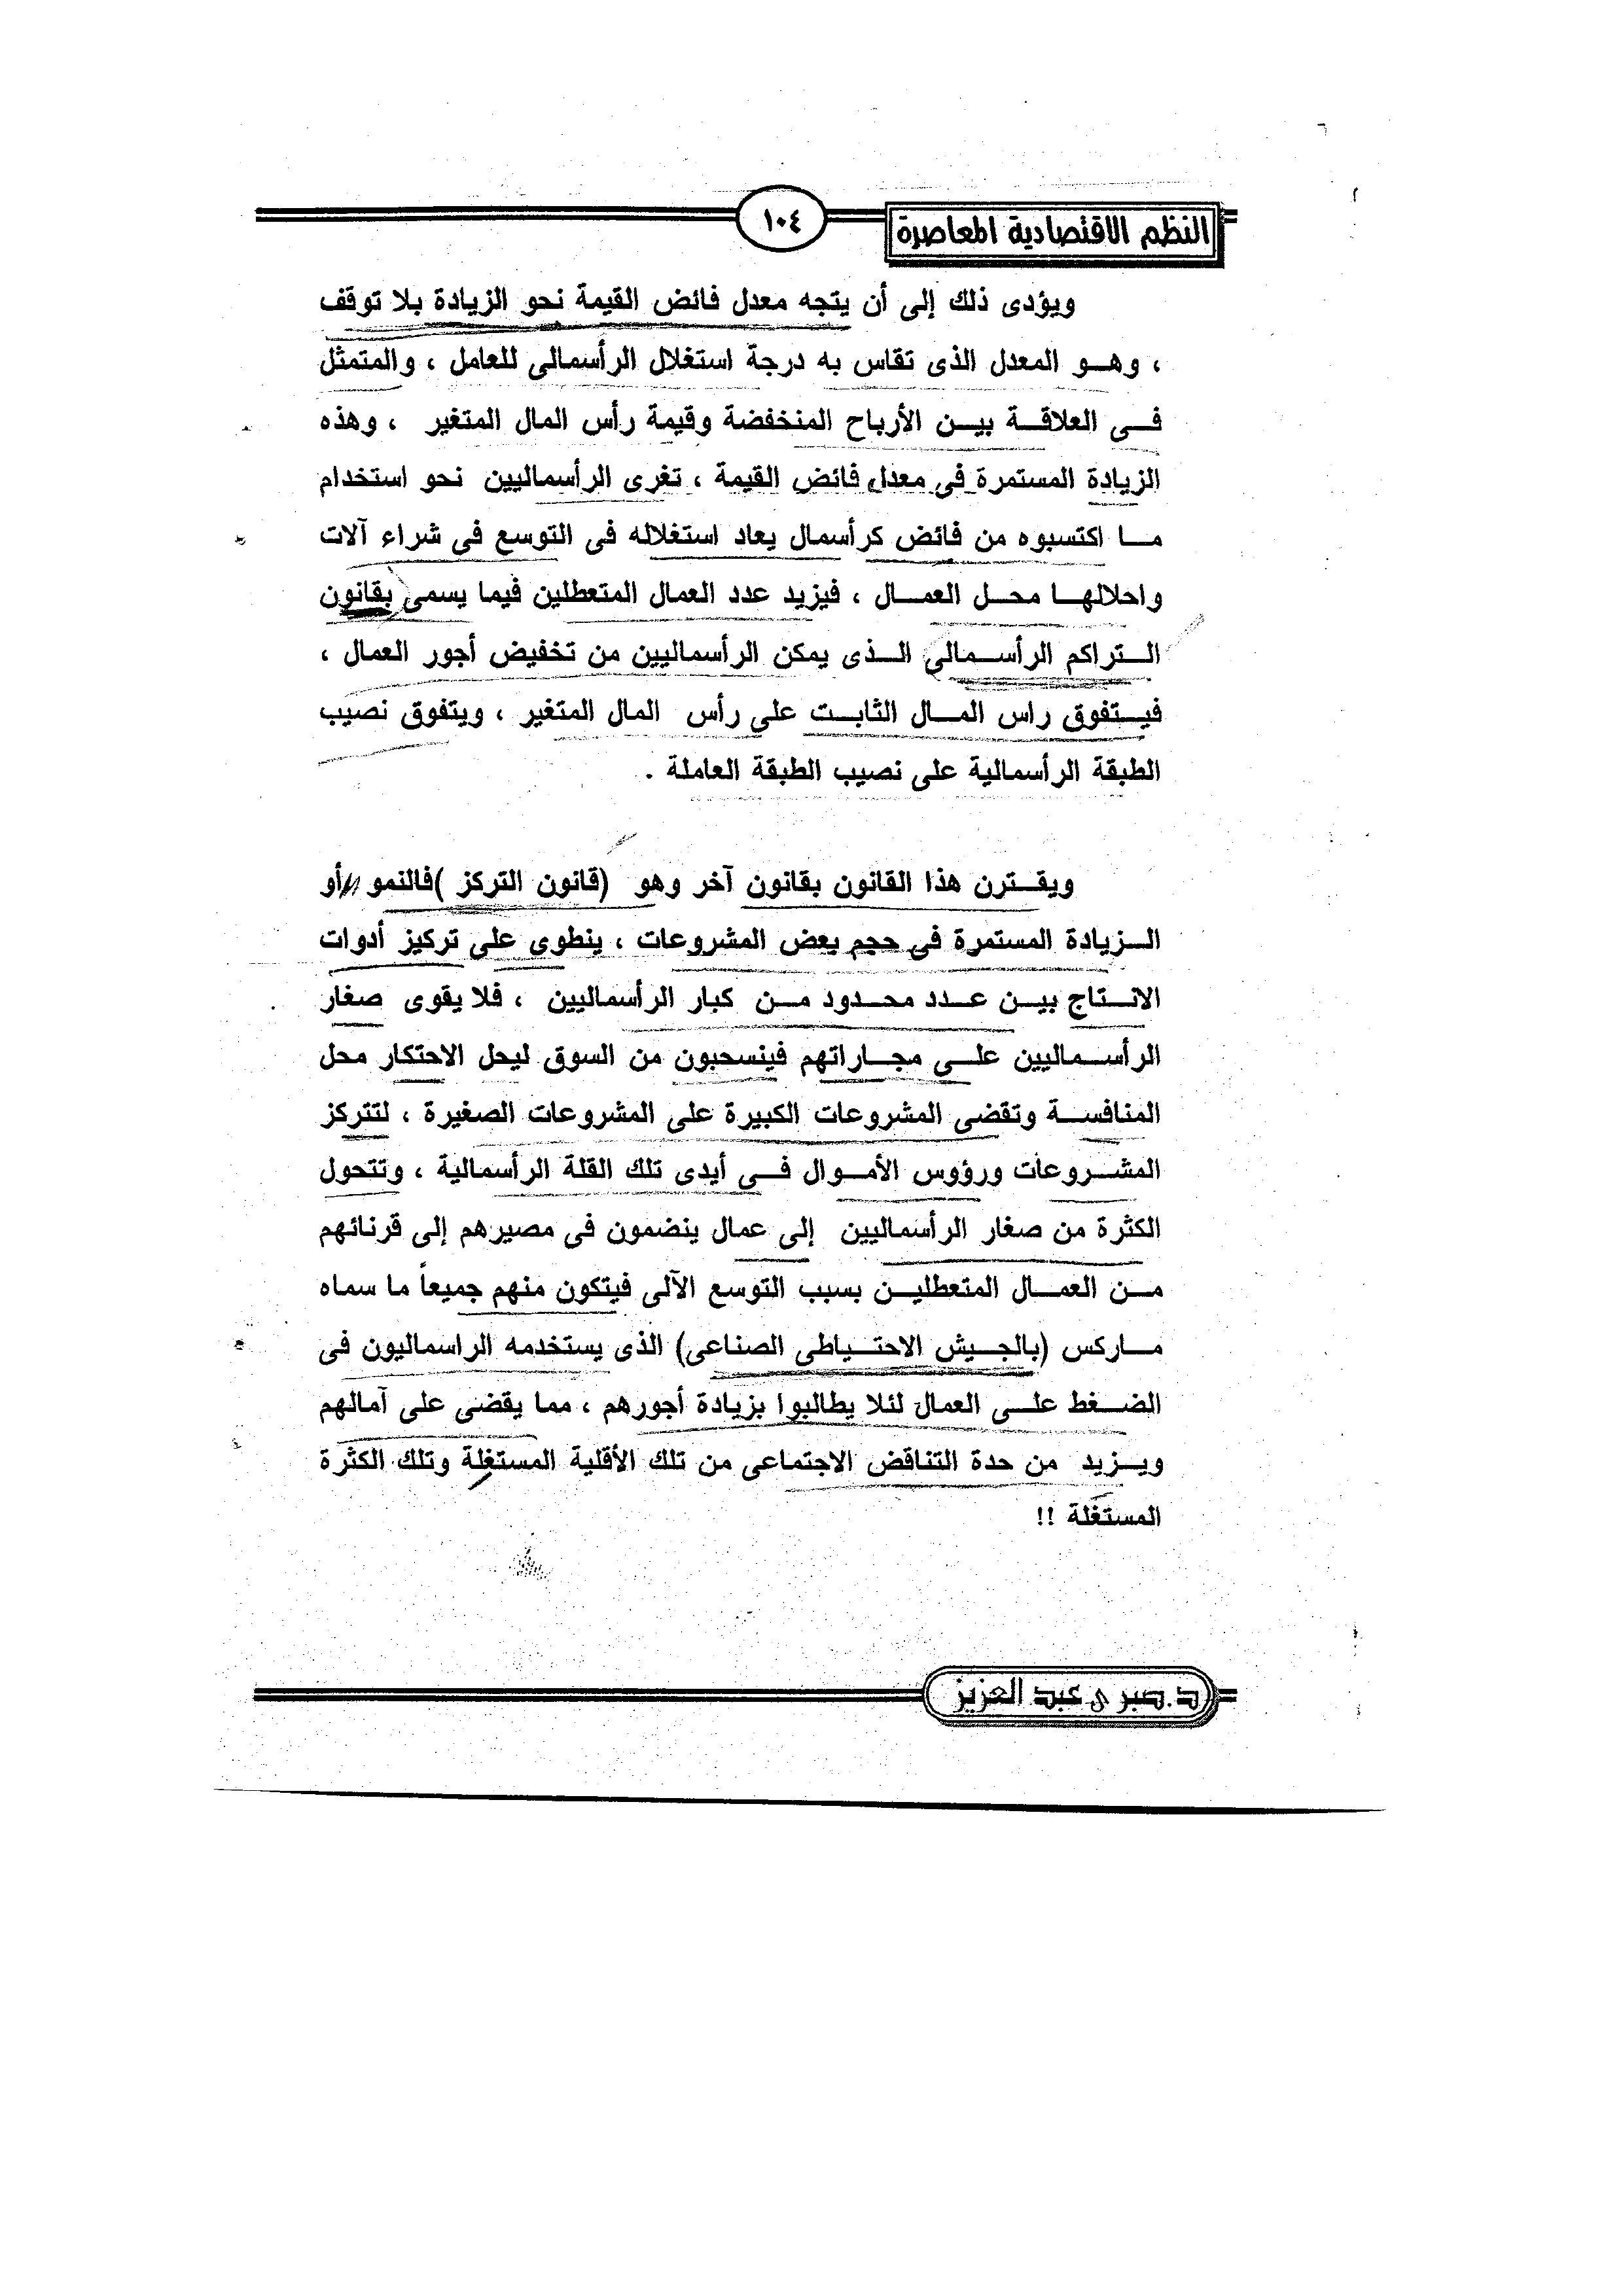 النظم الاقتصادية المعاصرة
١٠٤
ويؤدى ذلك إلى أن يتجه معدل فائض القيمة نحو الزيادة بلا توقف
، وهو المعدل الذى تقاس به درجة استغلال الرأسمالى للعامل ، والمتمثل
فى العلاقة بين الأرباح المنخفضة وقيمة رأس المال المتغير ، وهذه
الزيادة المستمرة فى معدل فائض القيمة ، تغرى الرأسماليين نحو استخدام
ما اكتسبوه من فائض كرأسمال يعاد استغلاله فى التوسع فى شراء آلات
واحلالها محل العمال ، فيزيد عدد العمال المتعطلين فيما يسمى بقانون
التراكم الرأسمالى الذى يمكن الرأسماليين من تخفيض أجور العمال ،
فيتفوق راس المال الثابت على رأس المال المتغير ، ويتفوق نصيب
الطبقة الرأسمالية على نصيب الطبقة العاملة .
ويقترن هذا القانون بقانون آخر وهو (قانون التركز )فالنمو أو
الزيادة المستمرة فى حجم بعض المشروعات ، ينطوى على تركيز أدوات
الانتاج بين عدد محدود من كبار الرأسماليين ، فلا يقوى صغار
الرأسماليين على مجاراتهم فينسحبون من السوق ليحل الاحتكار محل
المنافسة وتقضى المشروعات الكبيرة على المشروعات الصغيرة ، لتتركز
المشروعات ورؤوس الأموال فى أيدى تلك القلة الرأسمالية ، وتتحول
الكثرة من صغار الرأسماليين إلى عمال ينضمون فى مصيرهم إلى قرنائهم
من العمال المتعطلين بسبب التوسع الآلى فيتكون منهم جميعاً ما سماه
ماركس (بالجيش الاحتياطى الصناعى) الذى يستخدمه الراسماليون فى
الضغط على العمال لئلا يطالبوا بزيادة أجورهم ، مما يقضى على آمالهم
ويزيد من حدة التناقض الاجتماعى من تلك الأقلية المستغلة وتلك الكثرة
المستغلة !!
د.صبرى عبد العزيز